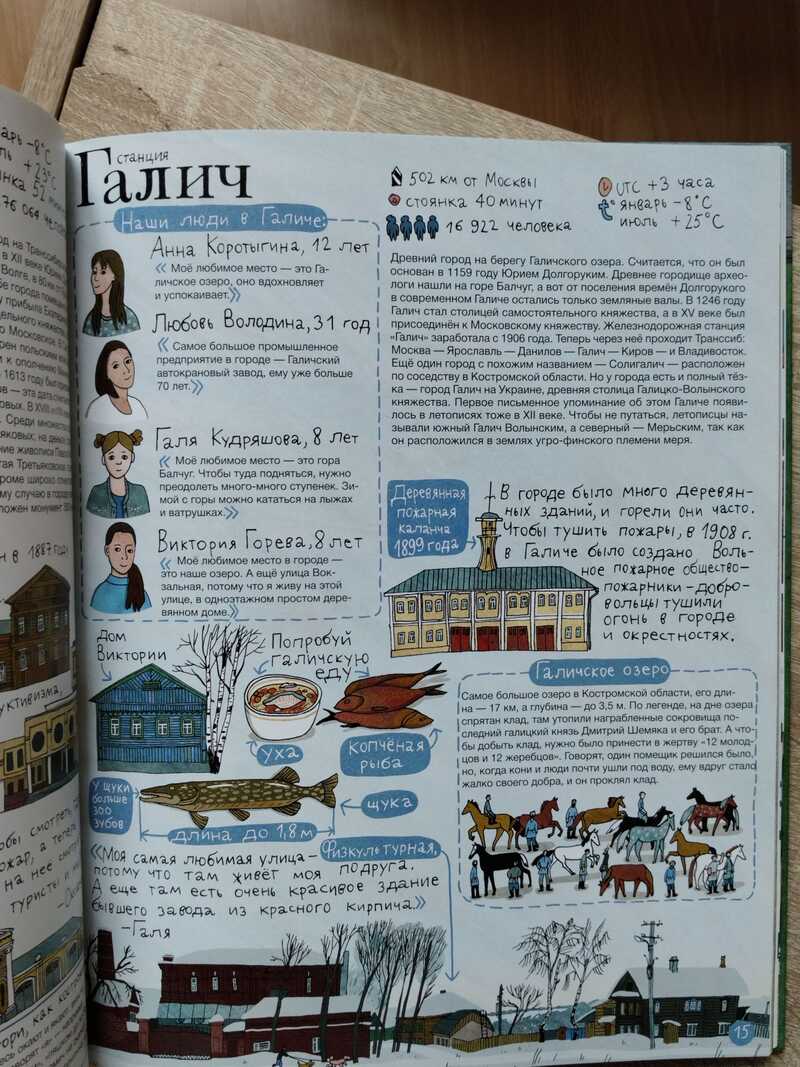 станция
Галич
502 км от Москвы
стоянка 40 минут
16 922 человека
UTC +3 часа
январь -8°C
июль +25°C
Наши люди в Галиче:
Анна Коротыгина, 12 лет
« Моё любимое место — это Га-
личское озеро, оно вдохновляет
и успокаивает.»
Любовь Володина, 31 год
« Самое большое промышленное
предприятие в городе — Галичский
автокрановый завод, ему уже больше
70 лет.»
Галя Кудряшова, 8 лет
« Моё любимое место — это гора
Балчуг. Чтобы туда подняться, нужно
преодолеть много-много ступенек. Зи-
мой с горы можно кататься на лыжах
и ватрушках.»
Виктория Горева, 8 лет
« Моё любимое место в городе —
это наше озеро. А ещё улица Вок-
зальная, потому что я живу на этой
улице, в одноэтажном простом дере-
вянном доме.»
Древний город на берегу Галичского озера. Считается, что он был
основан в 1159 году Юрием Долгоруким. Древнее городище архео-
логи нашли на горе Балчуг, а вот от поселения времён Долгорукого
в современном Галиче остались только земляные валы. В 1246 году
Галич стал столицей самостоятельного княжества, а в XV веке был
присоединён к Московскому княжеству. Железнодорожная станция
«Галич» заработала с 1906 года. Теперь через неё проходит Транссиб:
Москва — Ярославль — Данилов — Галич — Киров — и Владивосток.
Ещё один город с похожим названием — Солигалич — расположен
по соседству в Костромской области. Но у города есть и полный тёз-
ка — город Галич на Украине, древняя столица Галицко-Волынского
княжества. Первое письменное упоминание об этом Галиче появи-
лось в летописях тоже в XII веке. Чтобы не путаться, летописцы на-
зывали южный Галич Волынским, а северный — Мерьским, так как
он расположился в землях угро-финского племени меря.
Деревянная
пожарная
каланча
1899 года
В городе было много деревян-
ных зданий, и горели они часто.
Чтобы тушить пожары, в 1908 г.
в Галиче было создано Воль-
ное пожарное общество-
пожарники-добро-
вольцы тушили
огонь в городе
и окрестностях.
Дом
Виктории
Попробуй
галичскую
еду
уха
копчёная
рыба
У щуки
больше
300
зубов
щука
длина до 1,8 м
Галичское озеро
Самое большое озеро в Костромской области, его дли-
на — 17 км, а глубина — до 3,5 м. По легенде, на дне озера
спрятан клад, там утопили награбленные сокровища по-
следний галицкий князь Дмитрий Шемяка и его брат. А что-
бы добыть клад, нужно было принести в жертву «12 молод-
цов и 12 жеребцов». Говорят, один помещик решился было,
но, когда кони и люди почти ушли под воду, ему вдруг стало
жалко своего добра, и он проклял клад.
«Моя самая любимая улица- Физкультурная,
потому что там живёт моя подруга.
А еще там есть очень красивое здание
бывшего завода из красного кирпича.»
-Галя
15